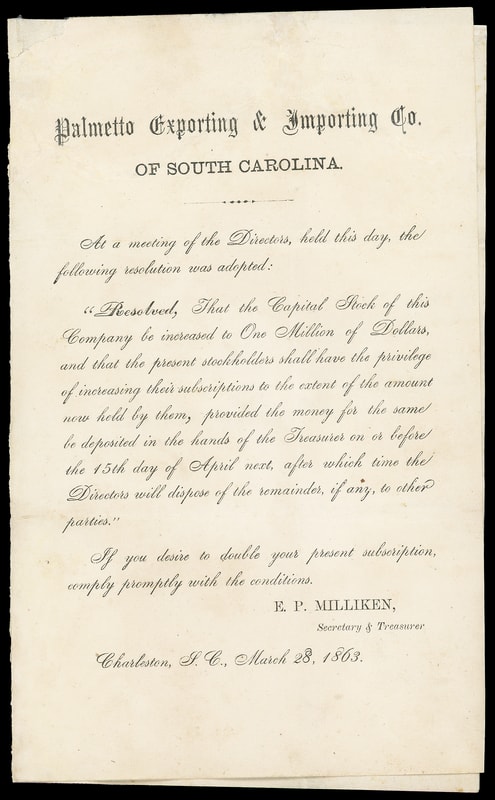 Palmetto Exporting & Importing Co.
OF SOUTH CAROLINA.
At a meeting of the Directors, held this day, the
following resolution was adopted:
"Resolved, That the Capital Stock of this
Company be increased to One Million of Dollars,
and that the present stockholders shall have the privilege
of increasing their subscriptions to the extent of the amount
now held by them, provided the money for the same
be deposited in the hands of the Treasurer on or before
the 15th day of April next, after which time the
Directors will dispose of the remainder, if any, to other
parties."
If you desire to double your present subscription,
comply promptly with the conditions.
E. P. MILLIKEN,
Secretary & Treasurer
Charleston, S. C., March 28, 1863.